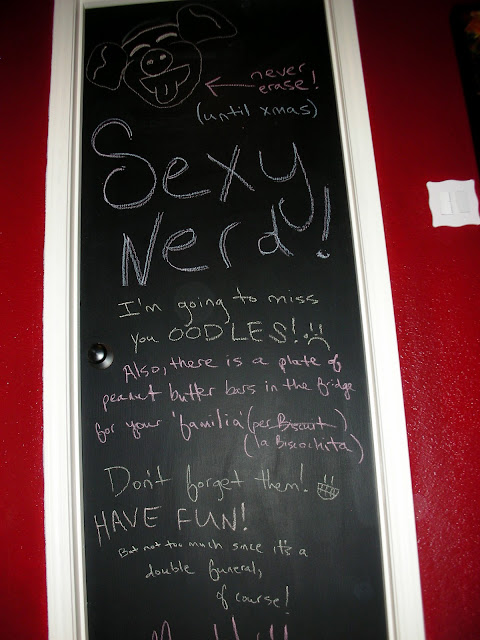 never
erase!
(until xmas)
Sexy
Nerd!
I'm going to miss
you OODLES!
Also, there is a plate of
peanut butter bars in the fridge
for your 'familia' (per Biscuit)
(la Biscochita)
Don't forget them!
HAVE FUN!
But not too much since it's a
double funeral,
of course!